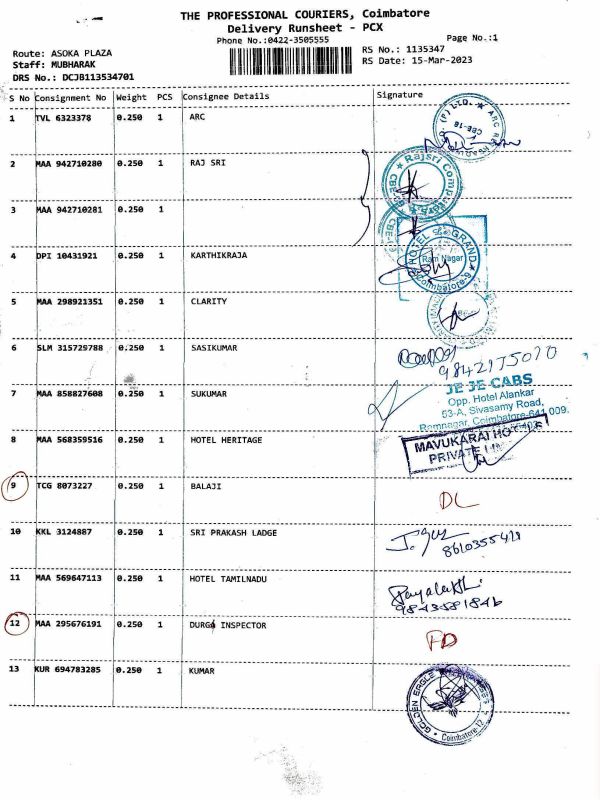 THE PROFESSIONAL COURIERS, Coimbatore
Delivery Runsheet - PCX
Phone No.:0422-3505555
Page No.:1
Route: ASOKA PLAZA
RS No.: 1135347
Staff: MUBHARAK
RS Date: 15-Mar-2023
DRS No.: DCJB113534701
S No Consignment No Weight PCS Consignee Details Signature
1 TVL 6323378 0.250 1 ARC
(P) LTD. ★ ARC
CBE-18
2 MAA 942710280 0.250 1 RAJ SRI
Rajsri
3 MAA 942710281 0.250 1
4 DPI 10431921 0.250 1 KARTHIKRAJA
HOTEL GRAND
Ram Nagar
Coimbatore-9
5 MAA 298921351 0.250 1 CLARITY
6 SLM 315729788 0.250 1 SASIKUMAR
7 MAA 858827608 0.250 1 SUKUMAR
JE JE CABS
Opp. Hotel Alankar
53-A, Sivasamy Road,
Ramnagar, Coimbatore-641 009.
8 MAA 568359516 0.250 1 HOTEL HERITAGE
MAVUKARAI
PRIVATE
9 TCG 8073227 0.250 1 BALAJI
DL
10 KKL 3124887 0.250 1 SRI PRAKASH LADGE
11 MAA 569647113 0.250 1 HOTEL TAMILNADU
12 MAA 295676191 0.250 1 INSPECTOR
13 KUR 694783285 0.250 1 KUMAR
GOLDEN
Coimbatore